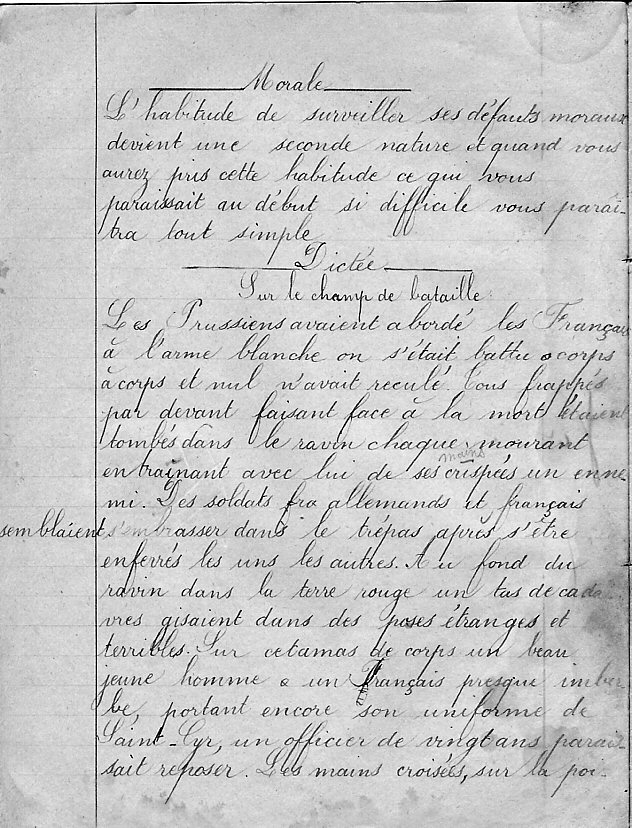 Morale
L'habitude de surveiller ses défauts moraux
devient une seconde nature et quand vous
aurez pris cette habitude ce qui vous
paraissait au début si difficile vous paraî-
tra tout simple
Dictée
Sur le champ de bataille
Les Prussiens avaient abordé les Français
à l'arme blanche on s'était battu corps
à corps et nul n'avait reculé. Tous frappés
par devant faisant face à la mort étaient
tombés dans le ravin chaque mourant
mains
entraînant avec lui de ses crispées un enne-
mi. Des soldats fra allemands et français
semblaient s'embrasser dans le trépas après s'être
enferrés les uns les autres. Au fond du
ravin dans la terre rouge un tas de cada
vres gisaient dans des poses étranges et
terribles. Sur cet amas de corps un beau
jeune homme un Français presque imber
be, portant encore son uniforme de
Saint-Cyr, un officier de vingt ans parais
sait reposer. Les mains croisées, sur la poi-